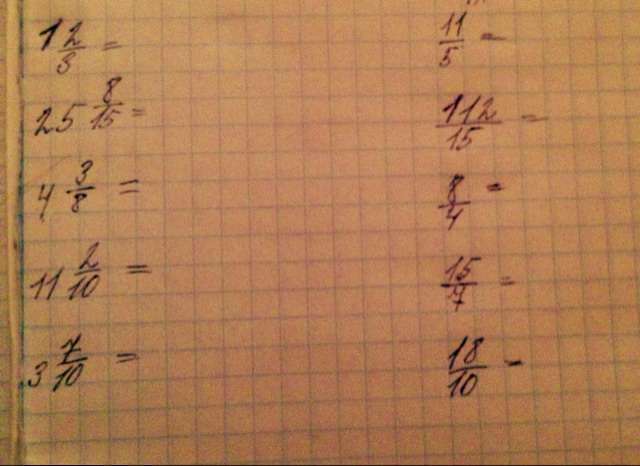 1 2/3 =
25 8/15 =
4 3/8 =
11 2/10 =
3 7/10 =
11/5 =
112/15 =
8/4 =
15/7 =
18/10 =